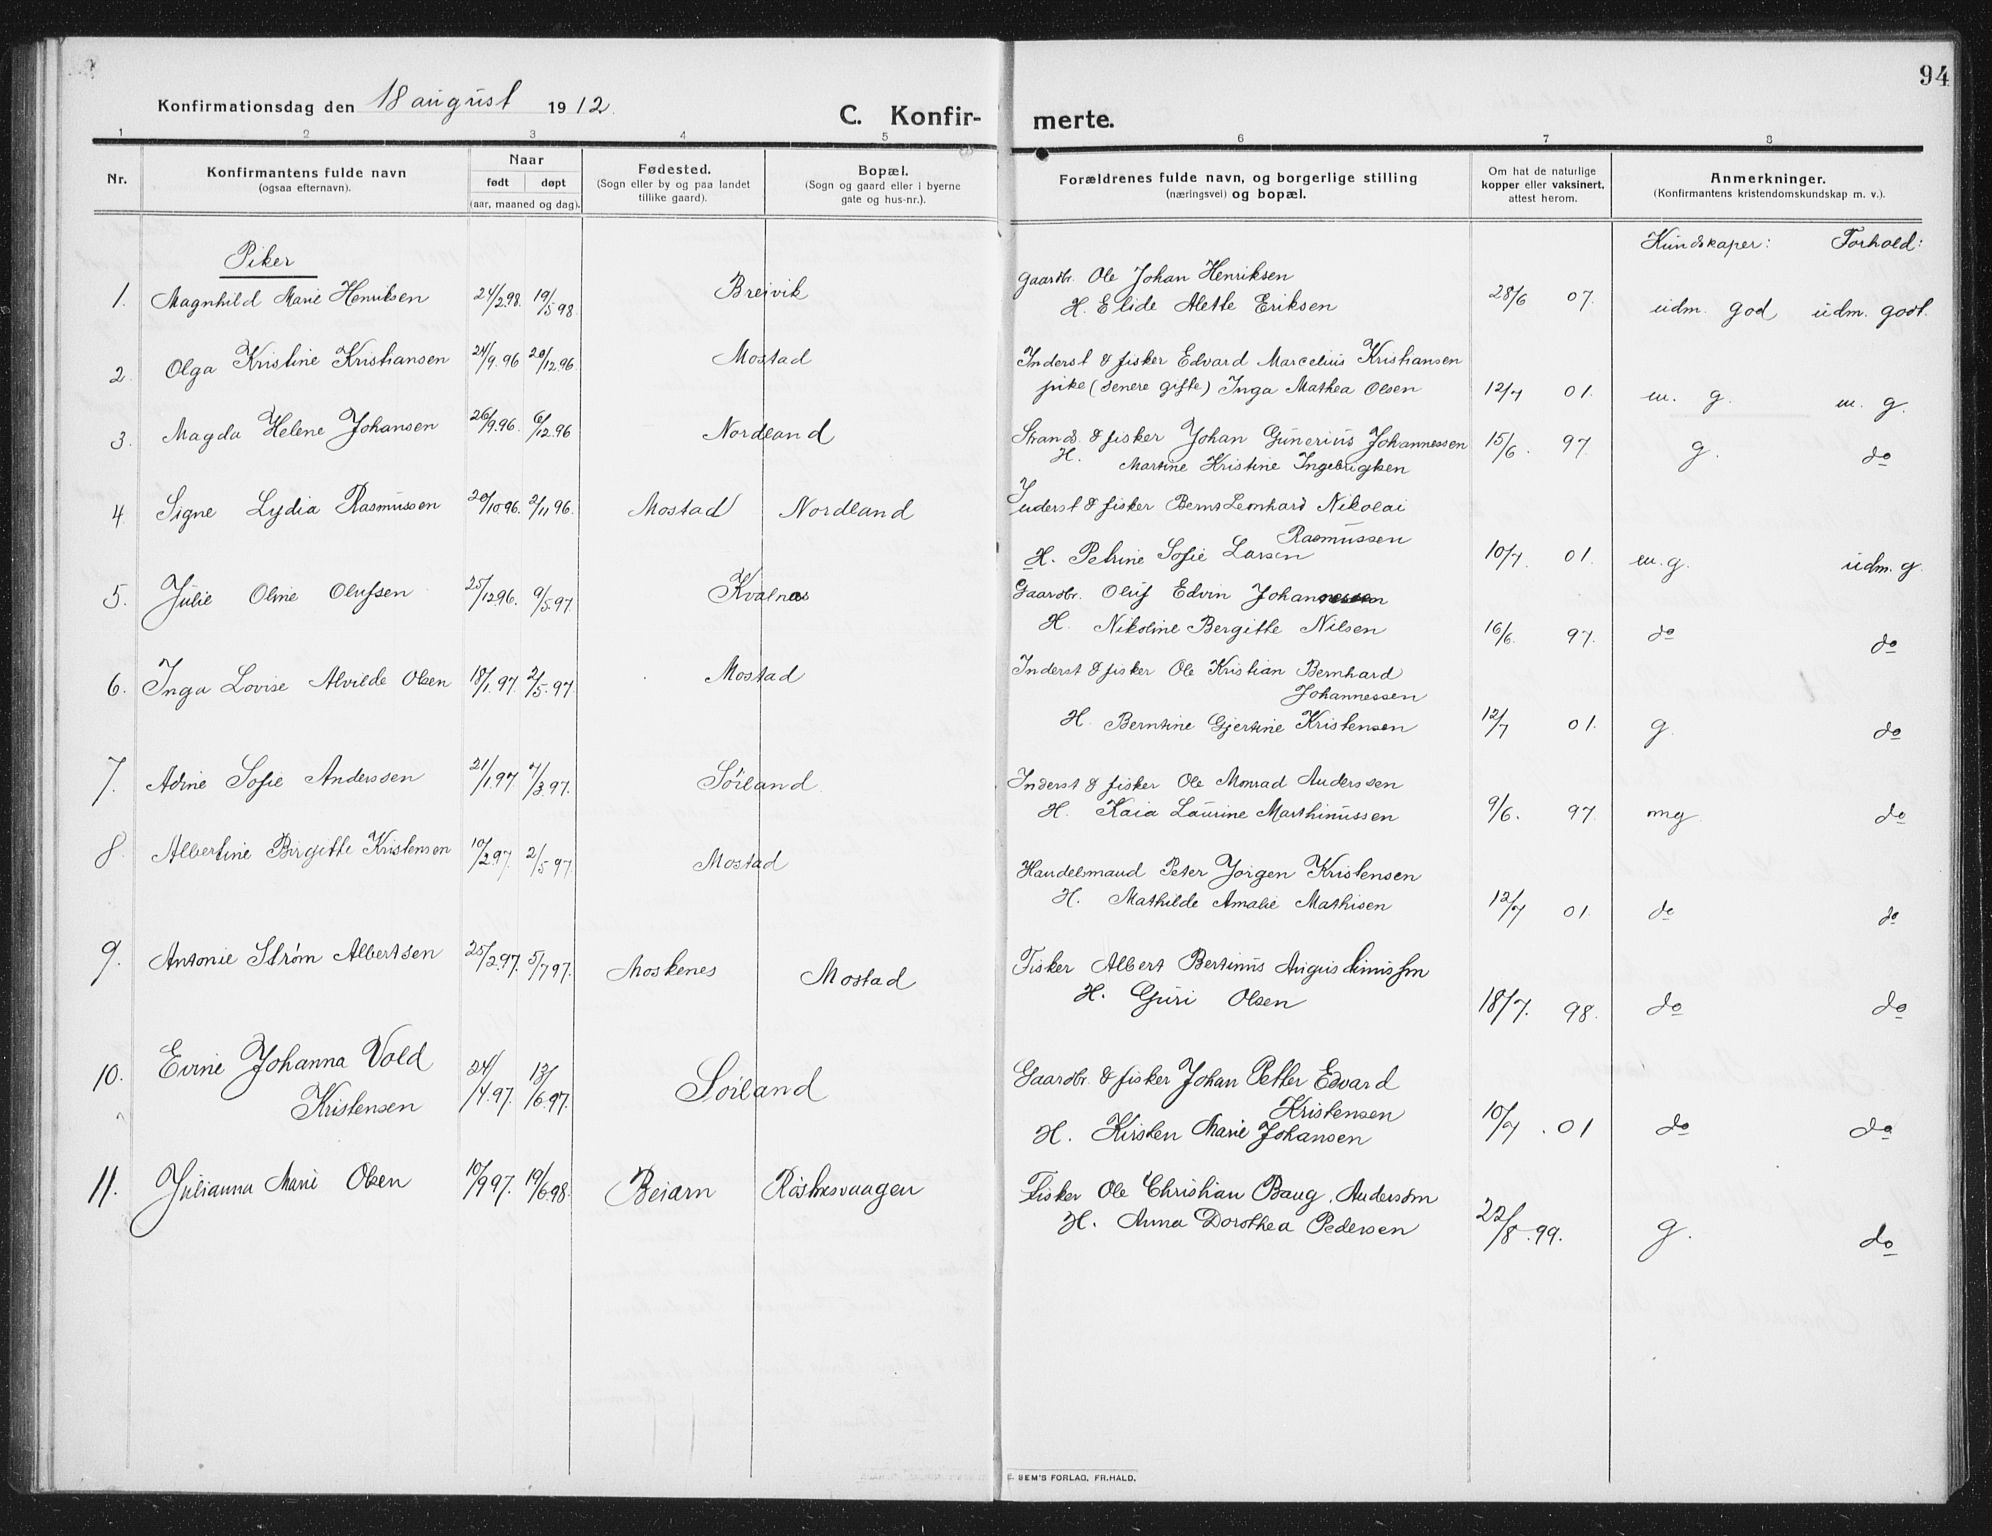 94
Konfirmationsdag den 18 august 1912.
C. Konfir- merte.
1 2 3 4 5 6 7 8
Nr.
Konfirmantens fulde navn
(ogsaa efternavn).
Naar
født døpt
(aar, maaned og dag).
Fødested.
(Sogn eller by og paa landet
tillike gaard).
Bopæl.
(Sogn og gaard eller i byerne
gate og hus-nr.).
Forældrenes fulde navn, og borgerlige stilling
(næringsvei) og bopæl.
Om hat de naturlige
kopper eller vaksinert,
attest herom.
Anmerkninger.
(Konfirmantens kristendomskundskap m. v.).
Piker
Kundskaper: Forhold:
1. Magnhild Marie Henriksen 24/2.98. 19/5 98 Breivik Gaardbr. Ole Johan Henriksen
H. Elide Alette Eriksen 28/6 07. udm. god udm. godt.
2. Olga Kristine Kristiansen 24/9.96 20/12.96. Mostad Inderst & fisker Edvard Marcelius Kristiansen
pike (senere gifte) Inga Mathea Olsen 12/7 01. m. g. m. g.
3. Magda Helene Johansen 26/9.96. 6/12.96 Nordland Strands. & fisker Johan Gunerius Johannessen
H. Martine Kristine Ingebrigtsen 15/6. 97. g. do
4. Signe Lydia Rasmussen 20/10 96. 2/11 96. Mostad Nordland Inderst & fisker Bernt Leonhard Nikolai
Rasmussen
H. Petrine Sofie Larsen 10/7. 01. m. g. udm. g.
5. Julie Oline Olufsen 25/12 96. 9/5.97. Kvalnes Gaardbr. Oluf Edvin Johannessen
H. Nikoline Bergitte Nilsen 16/6. 97. do do
6. Inga Lovise Alvilde Olsen 18/1.97. 2/5.97. Mostad Inderst & fisker Ole Kristian Bernhard
Johannessen
H. Berntine Gjertine Kristensen 12/7 01. g. do
7. Adine Sofie Anderssen 21/1.97. 7/3.97. Søiland. Inderst & fisker Ole Monrad Anderssen
H. Kaia Laurine Marthinussen 9/6. 97. mg. do
8. Albertine Birgitte Kristensen 10/2.97. 2/5.97. Mostad Handelsmand Peter Jørgen Kristensen
H. Mathilde Amalie Mathisen 12/7 01. do do
9. Antonie Strøm Albertsen 25/2.97. 5/7 97. Moskenes Mostad Fisker Albert Bertinus Augustinussen
H. Guri Olsen 18/7. 98. do do
10. Evine Johanna Vold
Kristensen 24/4.97. 13/6.97. Søiland Gaardbr. & fisker Johan Petter Edvard
Kristensen
H. Kirsten Marie Johansen 10/7. 01 do do
11. Julianna Marie Olsen 10/9 97. 19/6.98. Beiarn Røstnesvaagen Fisker Ole Christian Baug. Anderssen
H. Anna Dorothea Pedersen 22/8. 99. g. do
E. SEM'S FORLAG, FR.HALD.